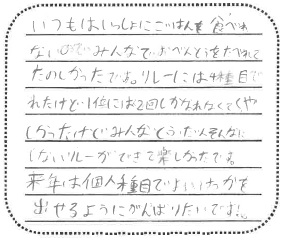 いつもはいっしょにごはんを食べれ
ないのでみんなでおべんとうをたべれて
たのしかったです。リレーには4種目で
れたけど1位には2回しかなれなくてくや
しかったけどみんなと
しないリレーができて楽しかったです。
来年は個人種目でよいけっかを
出せるようにがんばりたいです。